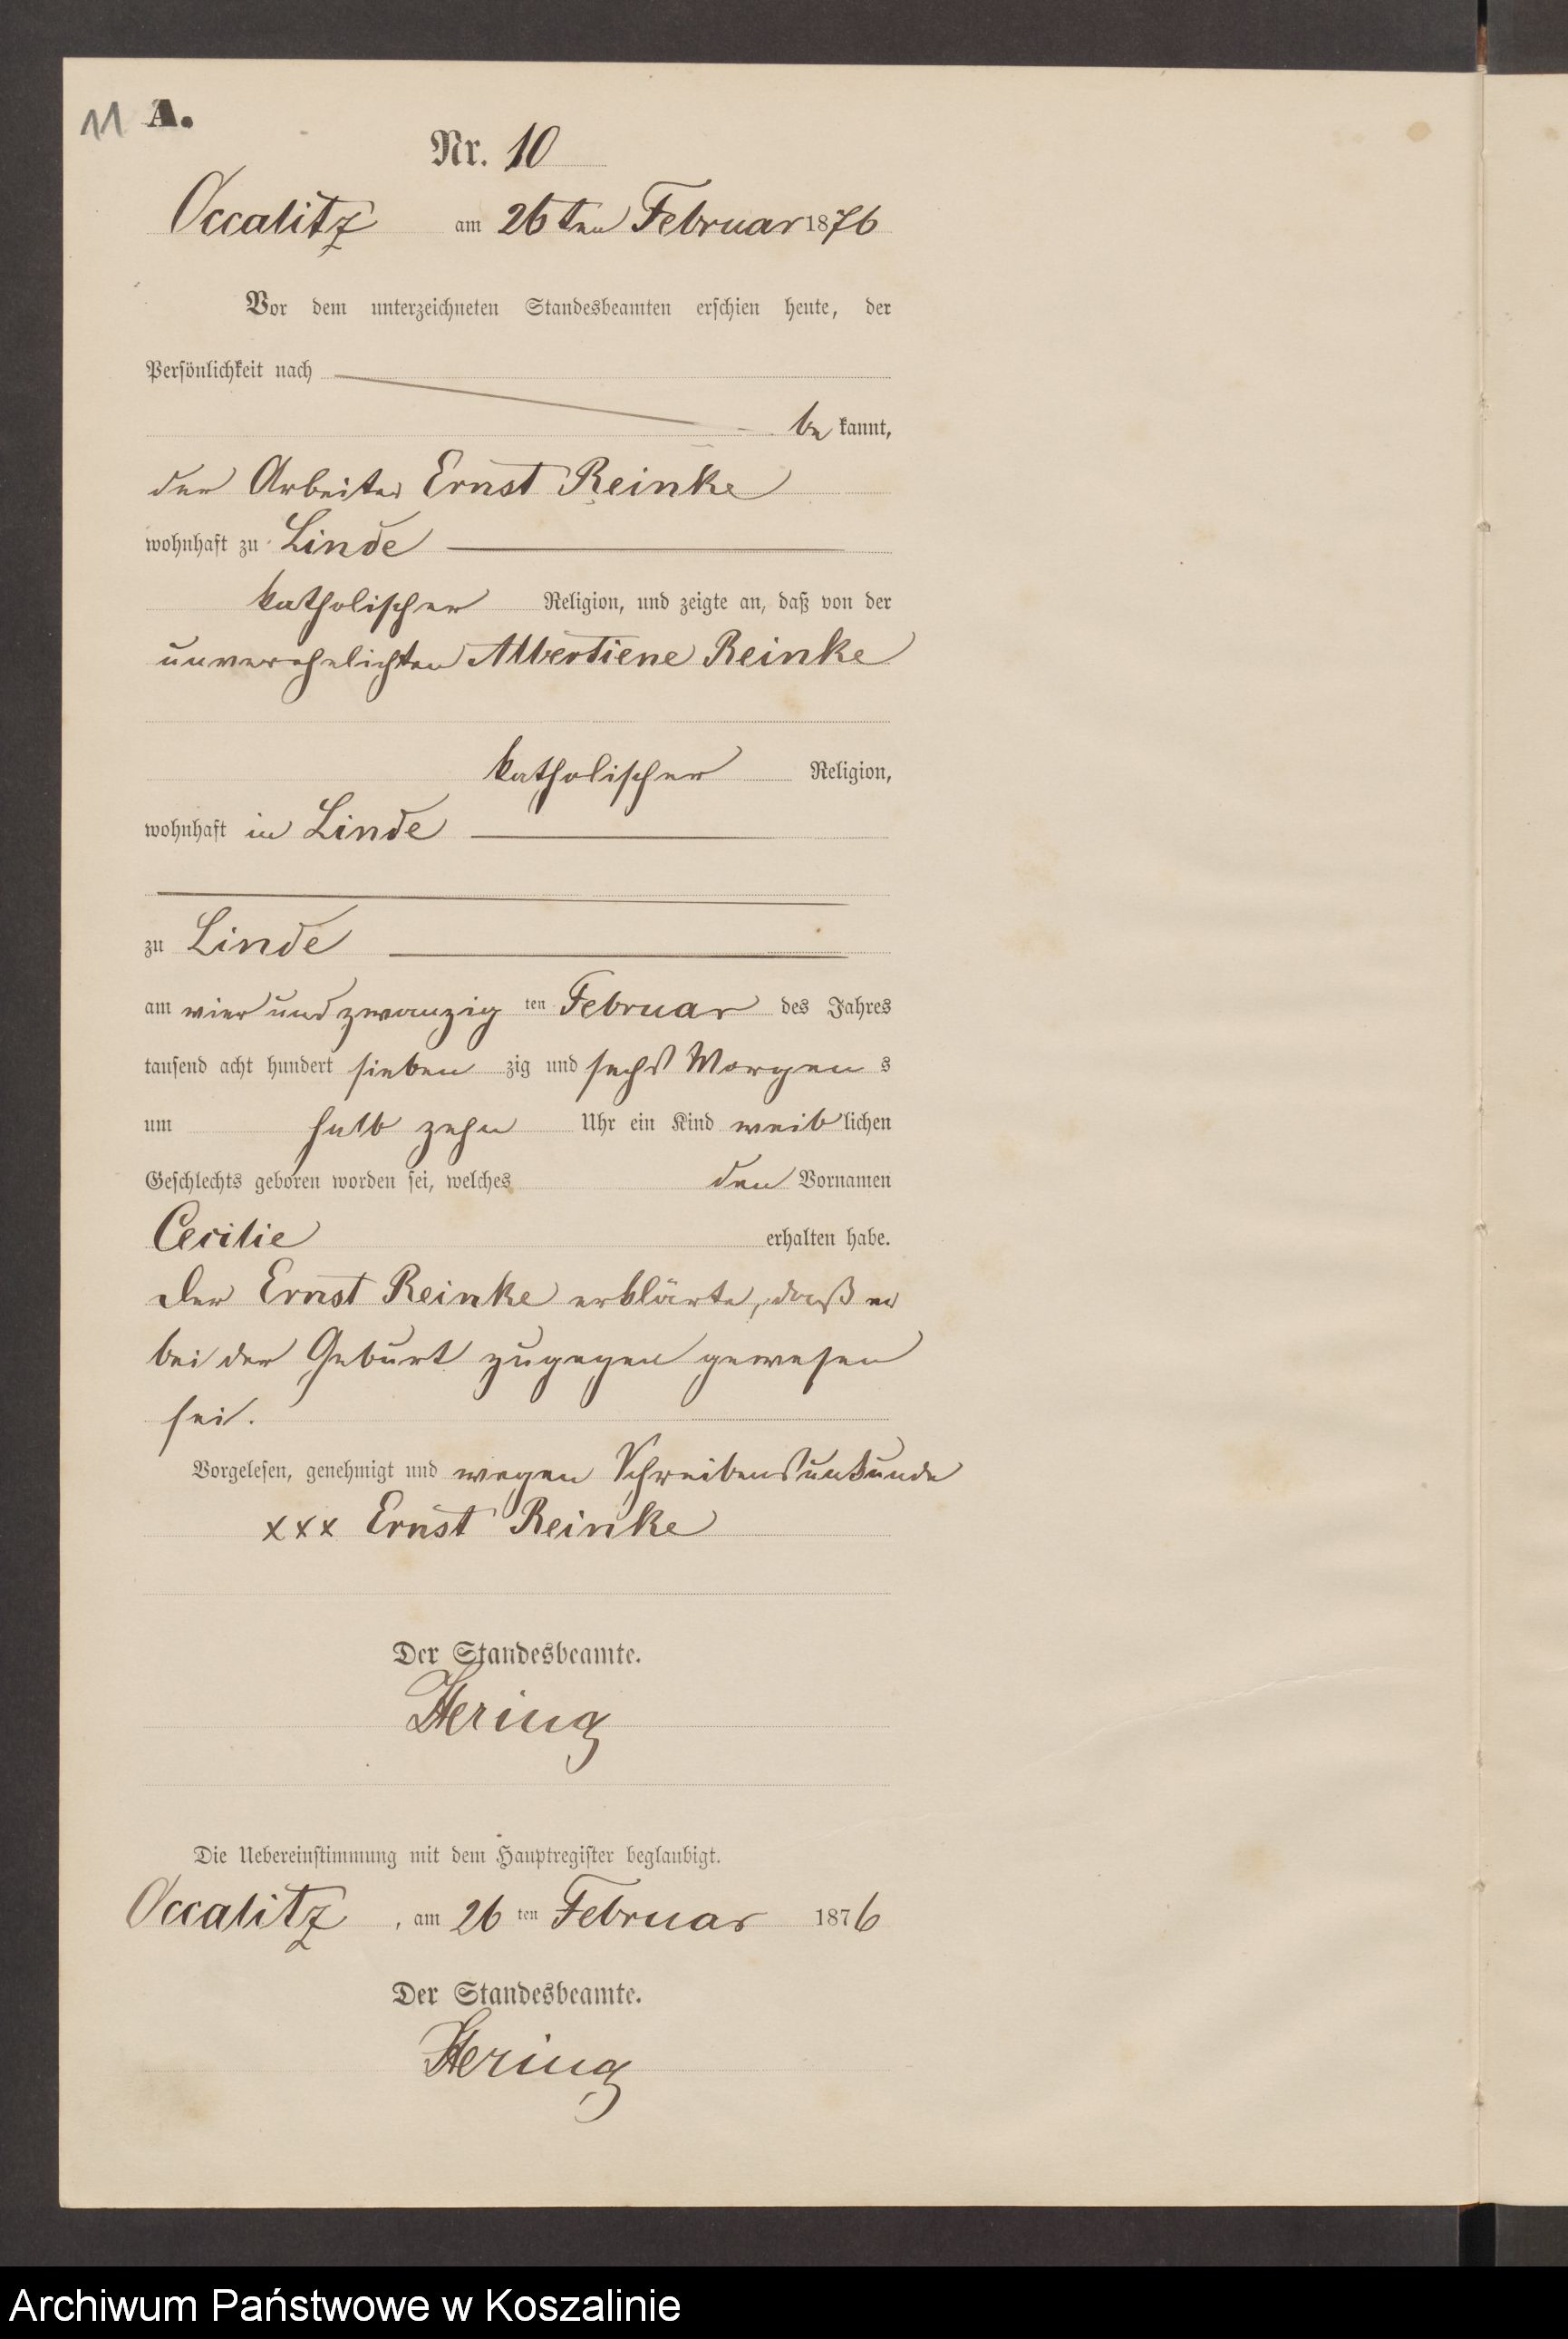 11 A.
Nr. 10
Occalitz am 26ten Februar 1876
Vor dem unterzeichneten Standesbeamten erschien heute, der
Persönlichkeit nach
be kannt,
der Arbeiter Ernst Reinke
wohnhaft zu Linde
katholischer Religion, und zeigte an, daß von der
unverehelichten Albertiene Reinke
katholischer Religion,
wohnhaft in Linde
zu Linde
am vier und zwanzig ten Februar des Jahres
tausend acht hundert sieben zig und sechs Morgen s
um halb zehn Uhr ein Kind weib lichen
Geschlechts geboren worden sei, welches den Vornamen
Cecilie erhalten habe.
Der Ernst Reinke erklärte, daß er
bei der Geburt zugegen gewesen
sei.
Vorgelesen, genehmigt und wegen Schreibensunkunde
xxx Ernst Reinke
Der Standesbeamte.
Hering
Die Uebereinstimmung mit dem Hauptregister beglaubigt.
Occalitz, am 26 ten Februar 1876
Der Standesbeamte.
Hering
Archiwum Państwowe w Koszalinie